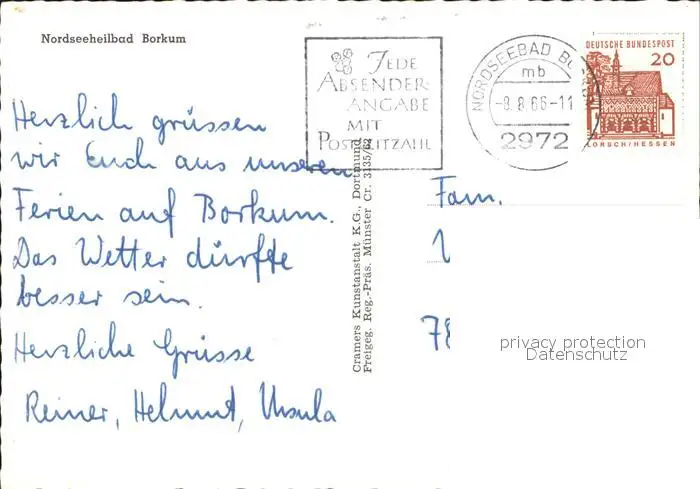 Nordseeheilbad Borkum
JEDE
ABSENDER-
ANGABE
MIT
POSTLEITZAHL
NORDSEEBAD
mb
-8.8.66-11
2972
DEUTSCHE BUNDESPOST
20
LORSCH/HESSEN
Herzlich grüssen
wir Euch aus unseren
Ferien auf Borkum.
Das Wetter dürfte
besser sein.
Herzliche Grüsse
Reiner, Helmut, Ursula
Cramers Kunstanstalt K.G., Dortmund
Freigeg. Reg.-Präs. Münster Cr. 3135/62
Fam.
privacy protection
Datenschutz